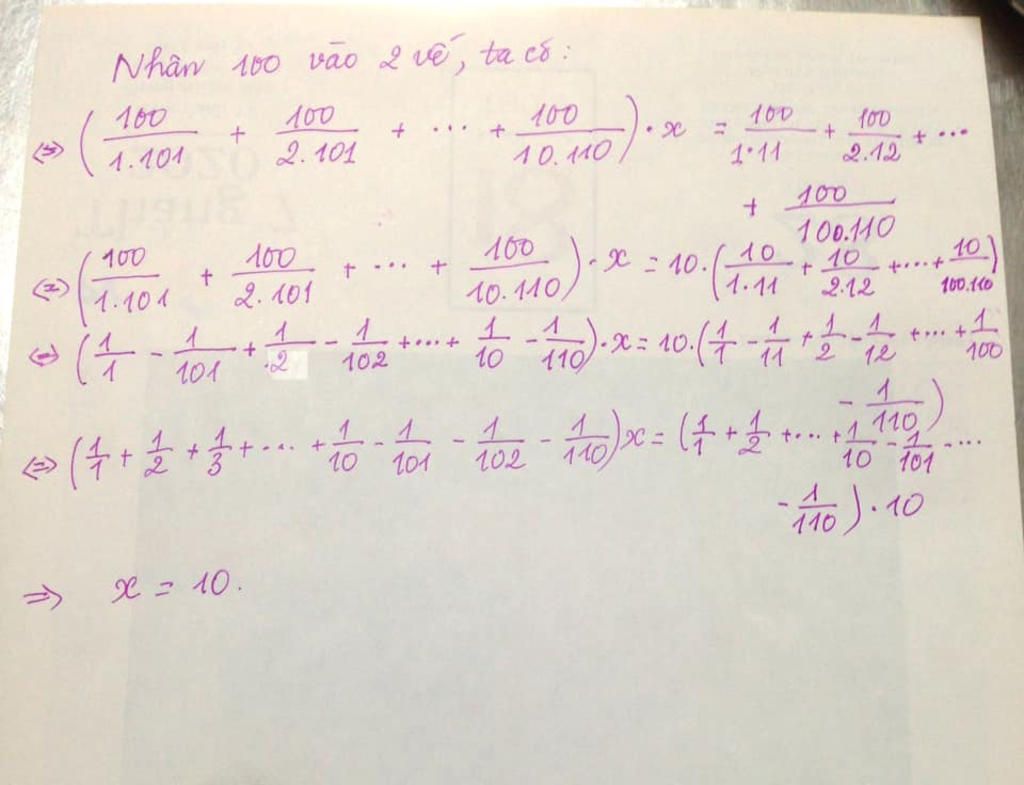 Nhân 100 vào 2 vế, ta có:
⇔ (100/1.101 + 100/2.101 + ... + 100/10.110) . x = 100/1.11 + 100/2.12 + ...
+ 100/100.110
⇔ (100/1.101 + 100/2.101 + ... + 100/10.110) . x = 10.(10/1.11 + 10/2.12 + ... + 10/100.110)
⇔ (1/1 - 1/101 + 1/.2 - 1/102 + ... + 1/10 - 1/110) . x = 10.(1/1 - 1/11 + 1/2 - 1/12 + ... + 1/100
- 1/110)
⇔ (1/1 + 1/2 + 1/3 + ... + 1/10 - 1/101 - 1/102 - 1/110)x = (1/1 + 1/2 + ... + 1/10 - 1/101 - ...
- 1/110) . 10
⇒ x = 10.